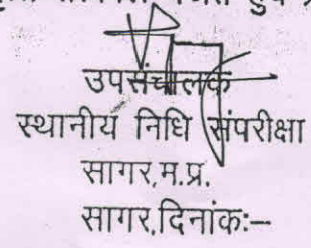 उपसंचालक
स्थानीय निधि संपरीक्षा
सागर,म.प्र.
सागर,दिनांकः–